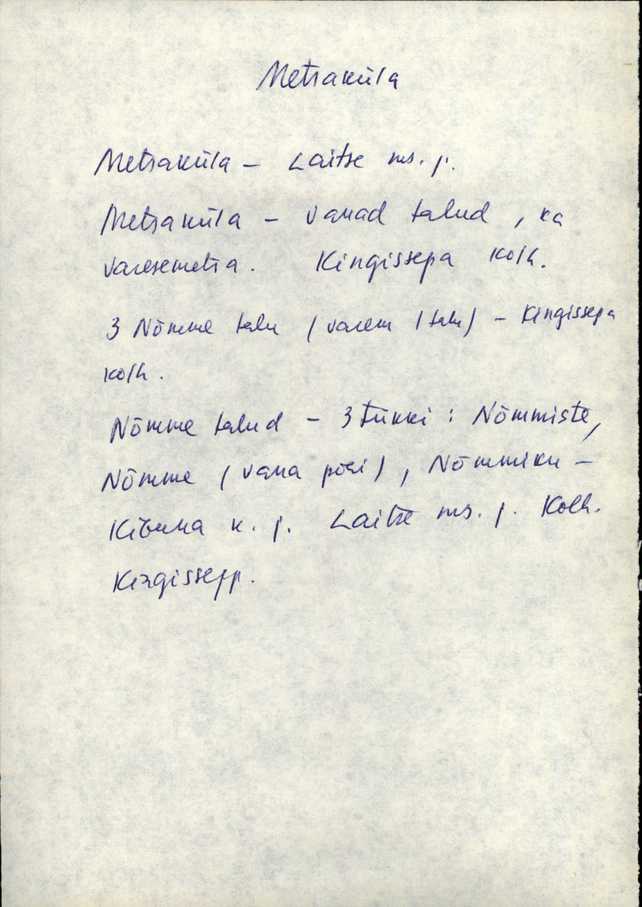 Metsaküla
Metsaküla – Laitse ms. j.
Metsaküla – vanad talud, ka
varesemetsa. Kingissepa kolh.
3 Nõmme talu (varem 1 talu) – Kingissepa
kolh.
Nõmme talud – 3 tükki: Nõmmiste,
Nõmme (vana põsi), Nõmmiku –
Kibuna k. j. Laitse ms. j. Kolh.
Kingissepp.